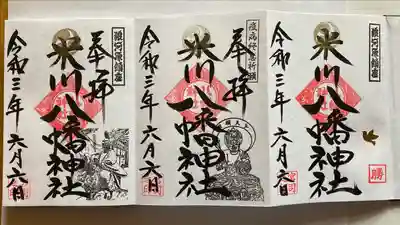 氷川八幡神社
令和三年 六月六日
勝
疫病終息祈願
奉拝
氷川八幡神社
令和三年 六月六日
奉拝
氷川八幡神社
令和三年 六月六日